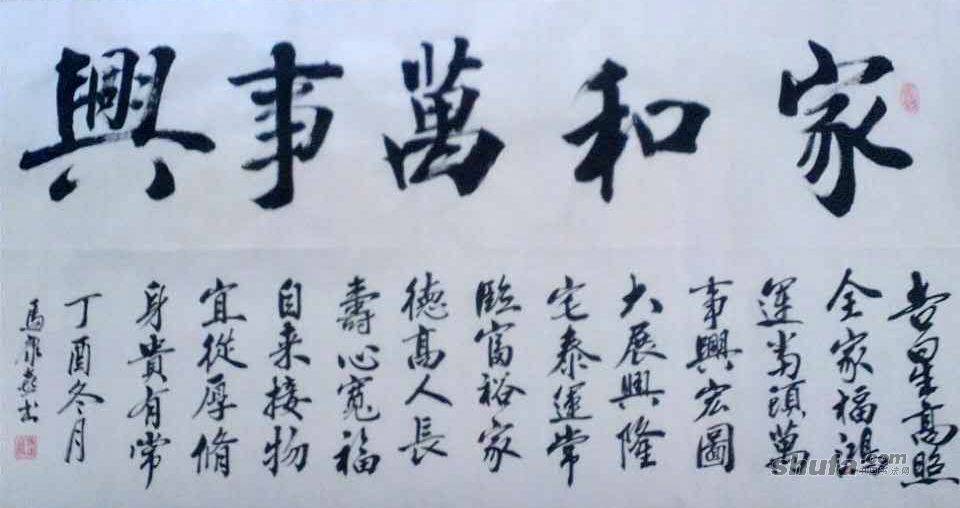 家和萬事興
吉星高照
全家福鴻
運當頭萬
事興宏圖
大展興隆
宅泰運常
臨富裕家
德高人長
壽心寬福
自来接物
宜從厚脩
身貴有常
丁酉冬月
馬
shufa.com